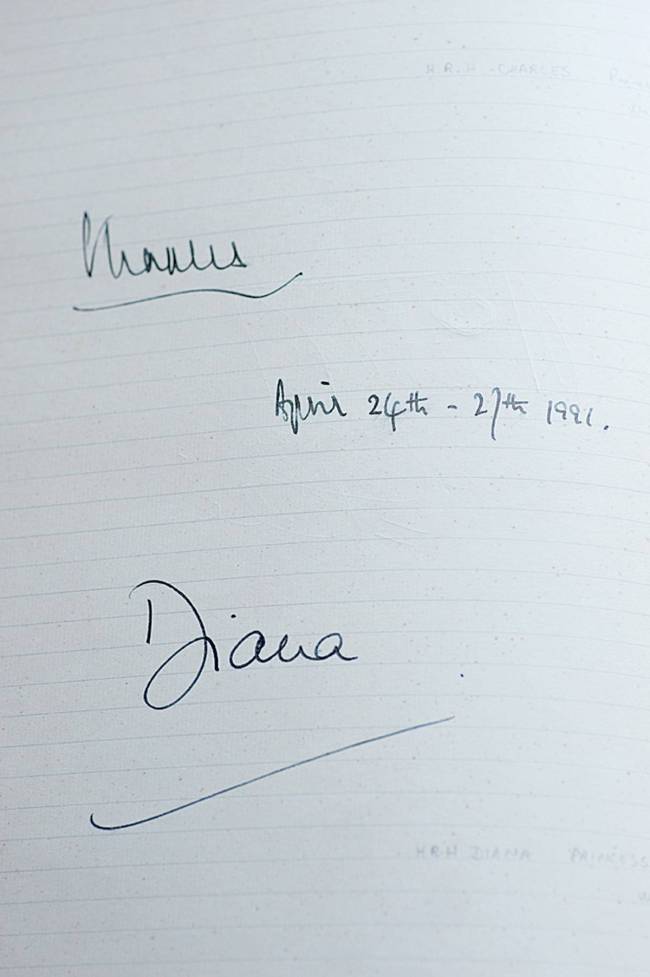 H.R.H. CHARLES
Charles
April 24th - 27th 1991.
Diana
HRH DIANA PRINCESS